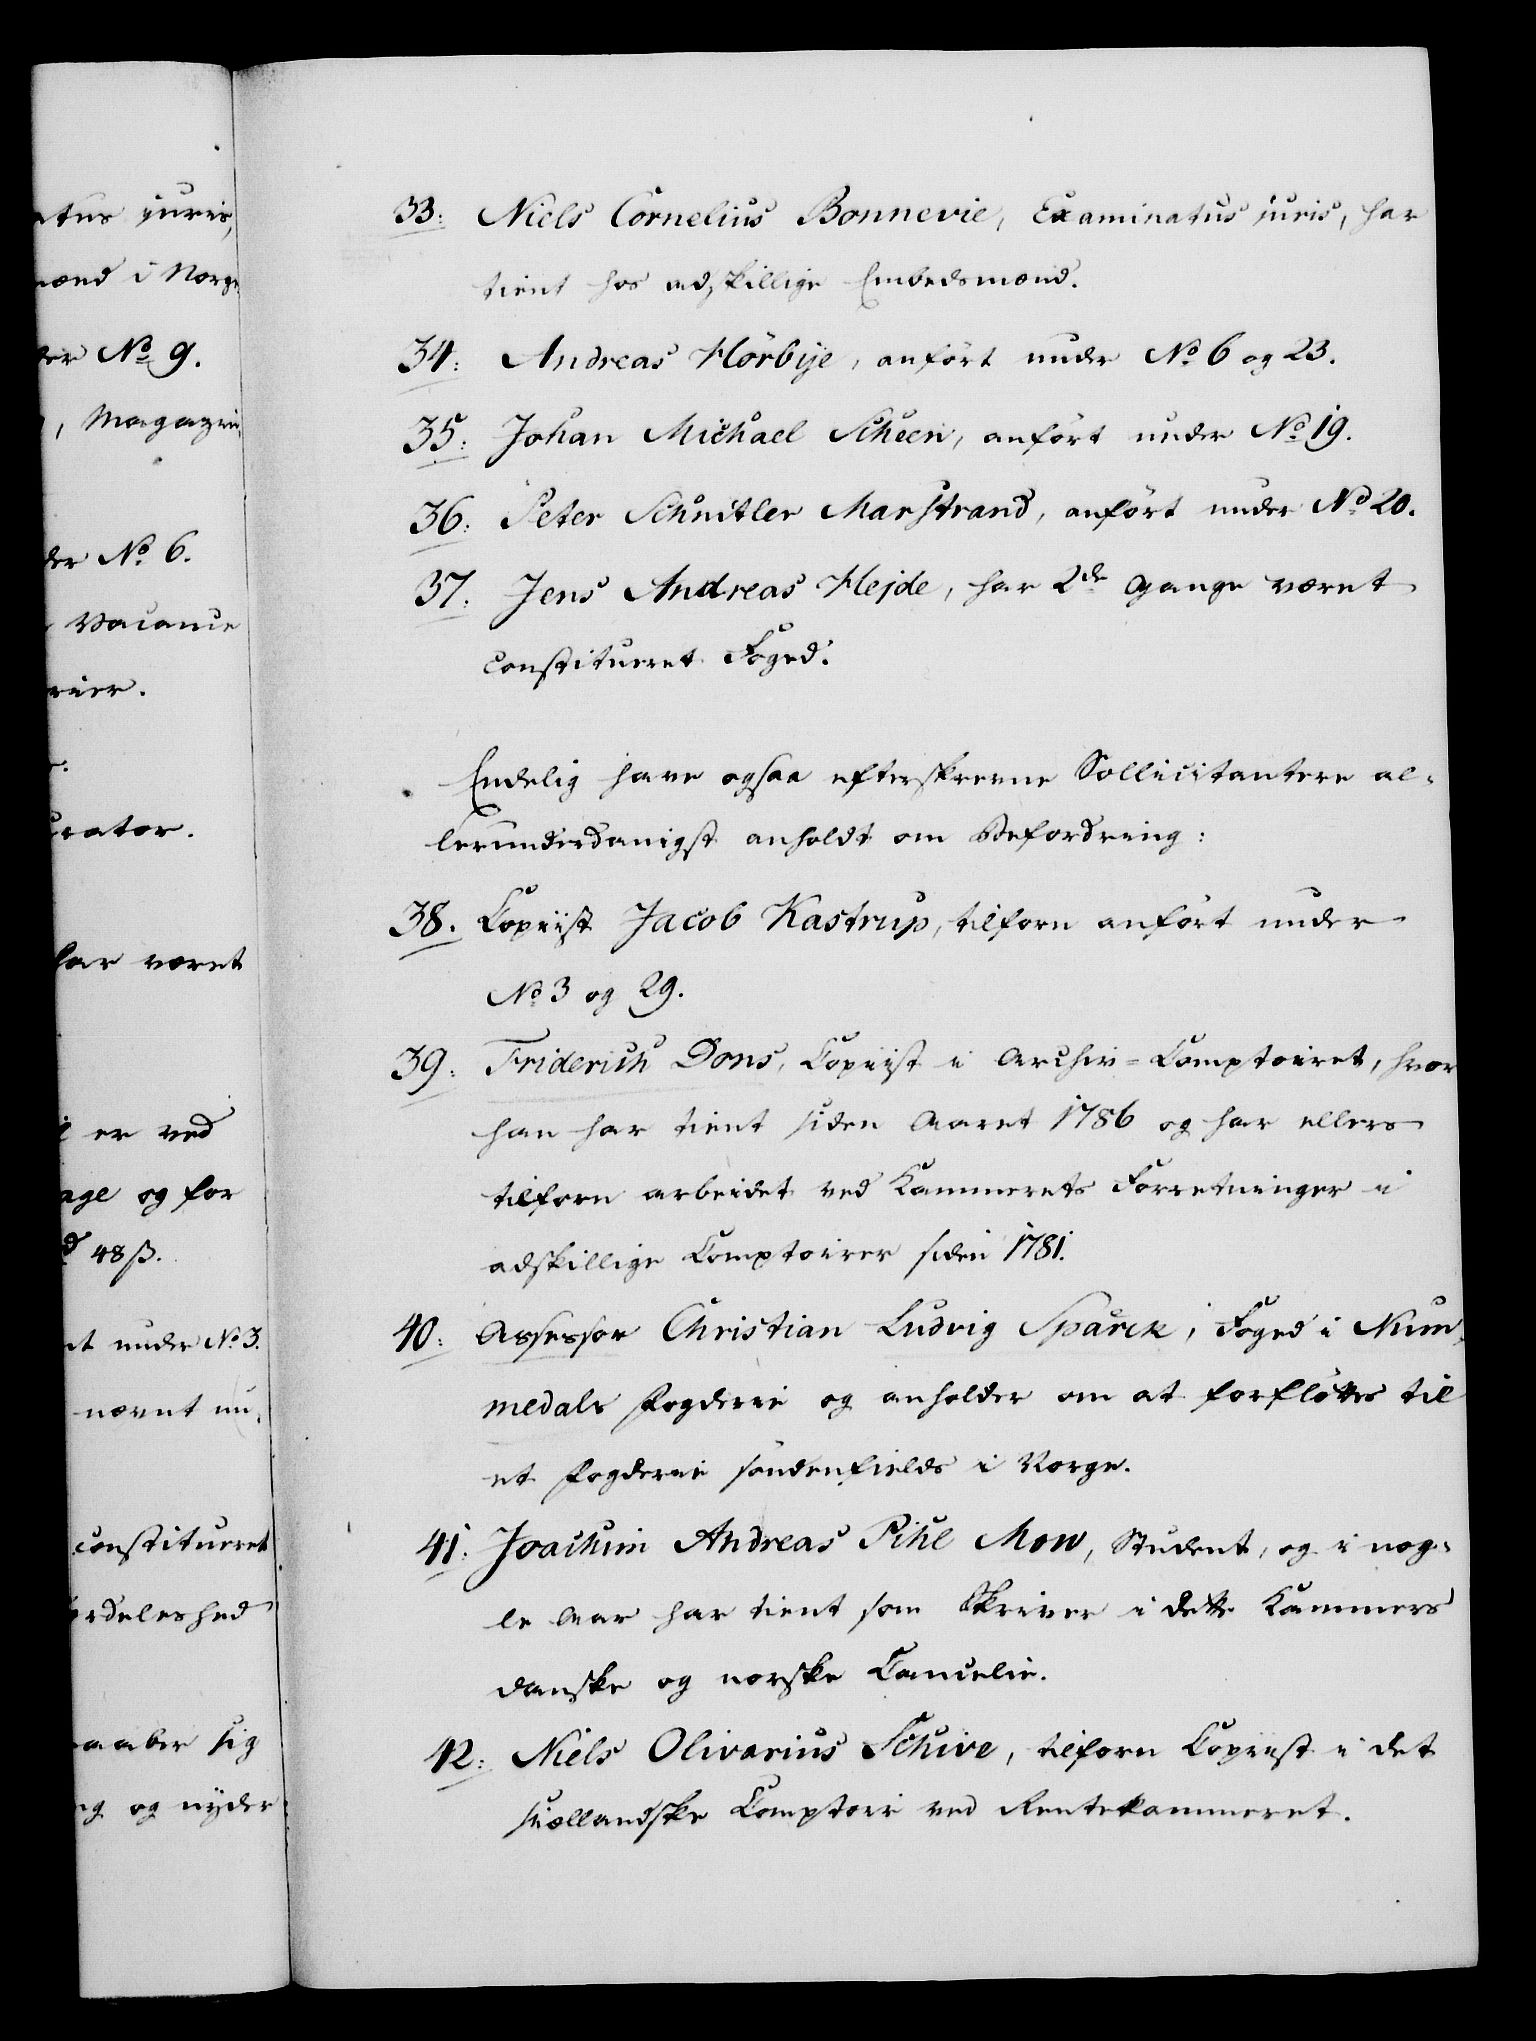 atus juris,
mænd i Norge
der No 9.
, Magazin
der No 6.
Vacance
rier.
urator.
har været
er ved
age og for
48 ß.
nt under No 3.
nævnt un-
constitueret
ærdeleshed
raaber sig
ng og nyder
33: Niels Cornelius Bonnevie, Examinatus juris, har
tient hos adskillige Embedsmænd.
34: Andreas Hörbye, anfört under No 6 og 23.
35: Johan Michael Scheen, anfört under No 19.
36: Peter Schnitler Marstrand, anfört under No 20.
37. Jens Andreas Hejde, har 2de Gange været
constitueret Foged.
Endelig have ogsaa efterskrevne Sollicitantere al-
lerunderdanigst anholdt om Befordring:
38. Copiist Jacob Kastrup, tilforn anfört under
No 3 og 29.
39: Friderich Dons, Copiist i Archiv-Comptoiret, hvor
han har tient siden Aaret 1786 og har ellers
tilforn arbeidet ved Kammerets Forretninger i
adskillige Comptoirer siden 1781.
40: Assessor Christian Ludvig Sparck, Foged i Num-
medals Fogderie og anholder om at forflöttes til
et Fogderie söndenfields i Norge.
41: Joachim Andreas Pihl Mow, Student, og i nog-
le Aar har tient som Skriver i dette Kammers
danske og norske Cancelie.
42: Niels Olivarius Schive, tilforn Copiist i det
siællandske Comptoir ved Rentekammeret.